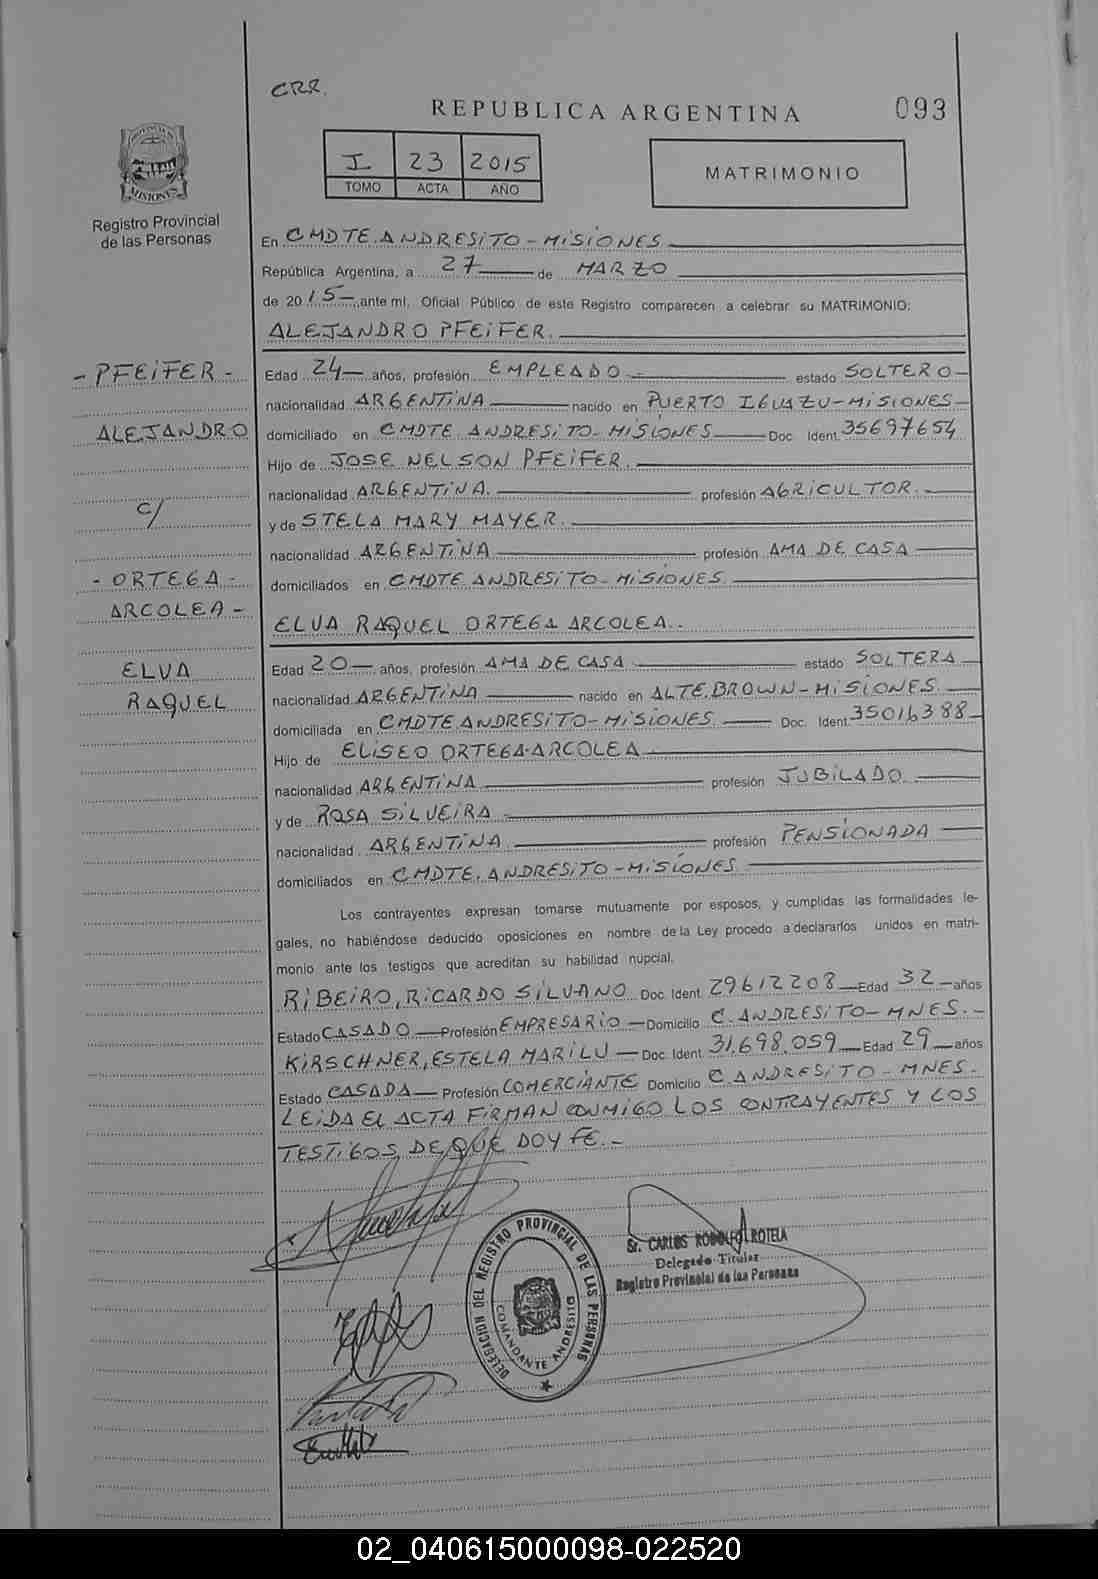 CRR.
REPUBLICA ARGENTINA
093
I 23 2015
TOMO ACTA AÑO
MATRIMONIO
PROVINCIA DE MISIONES
Registro Provincial
de las Personas
En CMDTE. ANDRESITO - MISIONES
República Argentina, a 27 de MARZO
de 2015 ante mí, Oficial Público de este Registro comparecen a celebrar su MATRIMONIO:
ALEJANDRO PFEIFER.
- PFEIFER -
ALEJANDRO
c/
- ORTEGA -
ARCOLEA -
ELVA
RAQUEL
Edad 24 años, profesión EMPLEADO - estado SOLTERO
nacionalidad ARGENTINA nacido en PUERTO IGUAZU - MISIONES
domiciliado en CMDTE. ANDRESITO - MISIONES Doc. Ident. 35697654
Hijo de JOSE NELSON PFEIFER.
nacionalidad ARGENTINA. profesión AGRICULTOR.
y de STELA MARY MAYER.
nacionalidad ARGENTINA profesión AMA DE CASA
domiciliados en CMDTE. ANDRESITO - MISIONES
ELVA RAQUEL ORTEGA ARCOLEA.
Edad 20 años, profesión AMA DE CASA estado SOLTERA
nacionalidad ARGENTINA nacido en ALTE. BROWN - MISIONES.
domiciliada en CMDTE ANDRESITO - MISIONES. Doc. Ident. 35016388
Hijo de ELISEO ORTEGA ARCOLEA
nacionalidad ARGENTINA profesión JUBILADO
y de ROSA SILVEIRA
nacionalidad ARGENTINA profesión PENSIONADA
domiciliados en CMDTE. ANDRESITO - MISIONES
Los contrayentes expresan tomarse mutuamente por esposos, y cumplidas las formalidades le-
gales, no habiéndose deducido oposiciones en nombre de la Ley procedo a declararlos unidos en matri-
monio ante los testigos que acreditan su habilidad nupcial.
RIBEIRO, RICARDO SILVANO Doc. Ident. 29612208 Edad 32 años
Estado CASADO Profesión EMPRESARIO Domicilio C. ANDRESITO - MNES. -
KIRSCHNER, ESTELA MARILU Doc. Ident. 31.698.059 Edad 29 años
Estado CASADA Profesión COMERCIANTE Domicilio C. ANDRESITO - MNES -
LEIDA EL ACTA FIRMAN CONMIGO LOS CONTRAYENTES Y LOS
TESTIGOS, DE QUE DOY FE. -
DELEGACION DEL REGISTRO PROVINCIAL DE LAS PERSONAS
COMANDANTE ANDRESITO
Sr. CARLOS RODOLFO ROTELA
Delegado Titular
Registro Provincial de las Personas
02_040615000098-022520